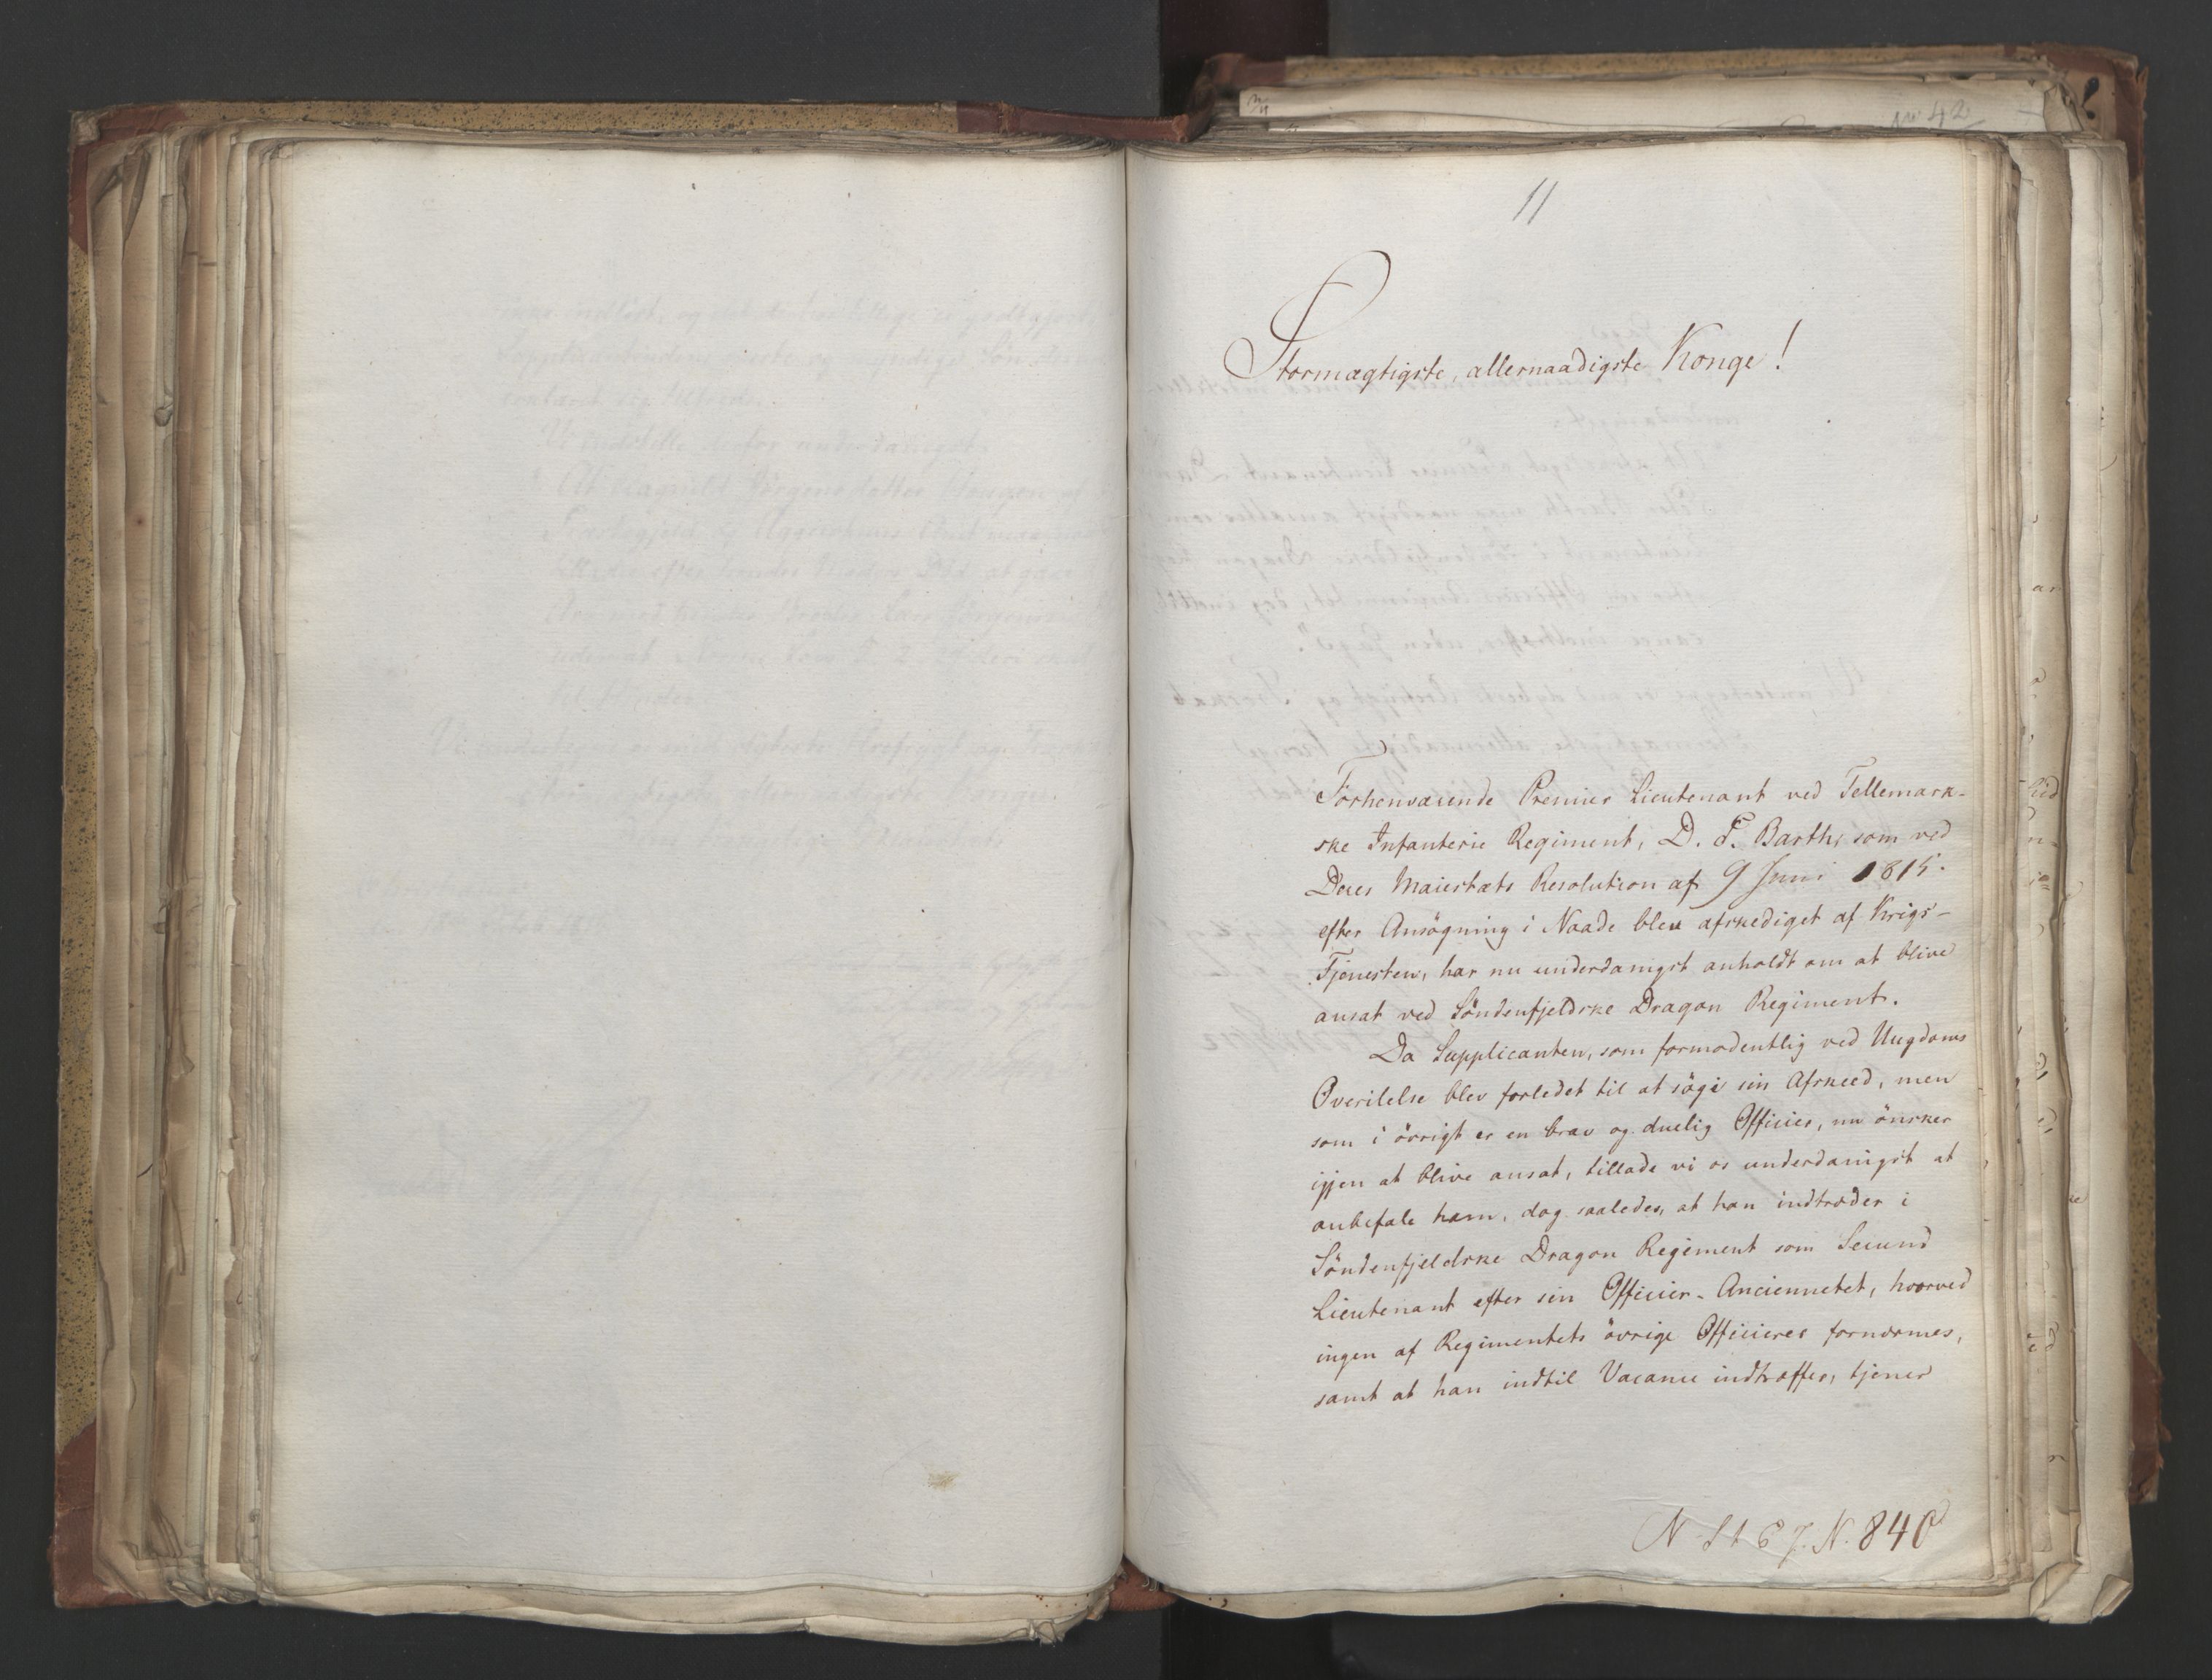 No 42
11
Stormægtigste, allernaadigste Konge!
Forhenværende Premier Lieutenant ved Tellemark-
ske Infanterie Regiment, D. P. Barth, som ved
Deres Maiestæts Resolution af 9 Juni 1815.
efter Ansögning i Naade blev afskediget af Krigs-
Tjenesten, har nu underdanigst anholdt om at blive
ansat ved Söndenfjeldske Dragon Regiment.
Da Supplicanten, som formodentlig ved Ungdoms
Overilelse blev forledet til at söge sin Afskeed, men
som i övrigt er en brav og duelig Officier, nu önsker
igjen at blive ansat, tillade vi os underdanigst at
anbefale ham, dog saaledes, at han indtræder i
Söndenfjeldske Dragon Regiment som Secund
Lieutenant efter sin Officier-Anciennetet, hvorved
ingen af Regimentets övrige Officierer fornærmes,
samt at han indtil Vacance indtræffer, tjener
N. 840